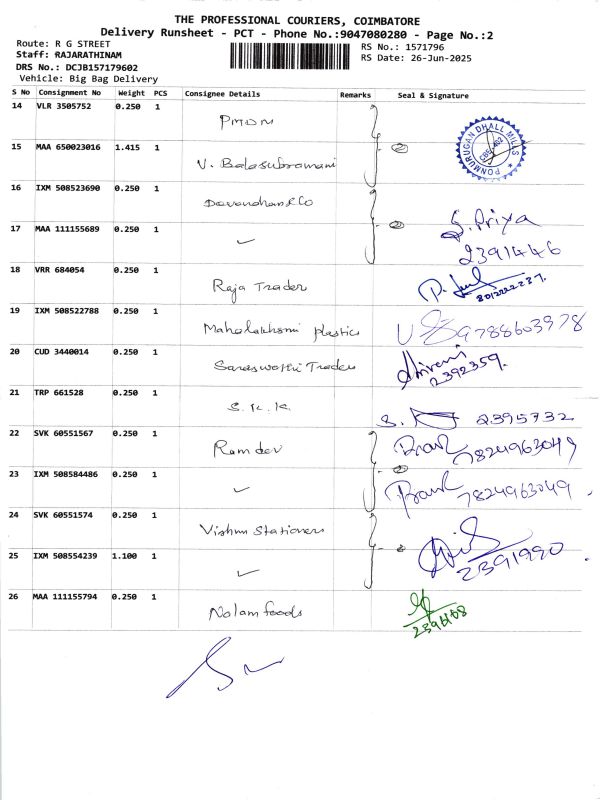 THE PROFESSIONAL COURIERS, COIMBATORE
Delivery Runsheet - PCT - Phone No.:9047080280 - Page No.:2
Route: R G STREET
Staff: RAJARATHINAM
DRS No.: DCJB157179602
Vehicle: Big Bag Delivery
RS No.: 1571796
RS Date: 26-Jun-2025
S No Consignment No Weight PCS Consignee Details Remarks Seal & Signature
14 VLR 3505752 0.250 1
PMDM
15 MAA 650023016 1.415 1
V. Balasubramani
2
PONMURUGAN DHALL MILLS
CBE-
16 IXM 508523690 0.250 1
Devandhan & Co
17 MAA 111155689 0.250 1
✓
2
S. Priya
2391446
18 VRR 684054 0.250 1
Raja Trader
19 IXM 508522788 0.250 1
Mahalakshmi plastics
9788603978
20 CUD 3440014 0.250 1
Saraswathi Traders
2392359.
21 TRP 661528 0.250 1
S.K.K.
S.
2395732
22 SVK 60551567 0.250 1
Ramdev
7824963049
23 IXM 508584486 0.250 1
✓
2
7824963049
24 SVK 60551574 0.250 1
Vishnu Stationers
25 IXM 508554239 1.100 1
✓
2
2391990
26 MAA 111155794 0.250 1
Nalam foods